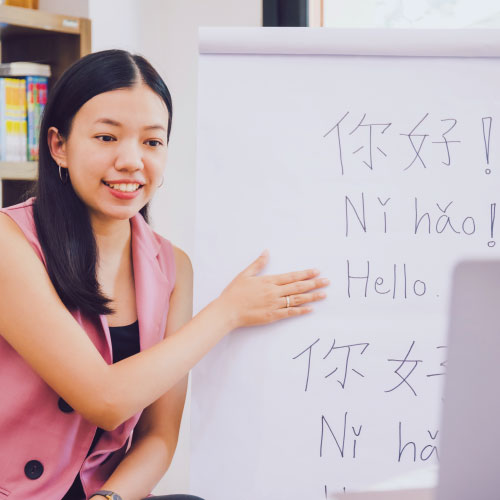 你好!
Nǐ hǎo!
Hello.
你好
Nǐ hǎ